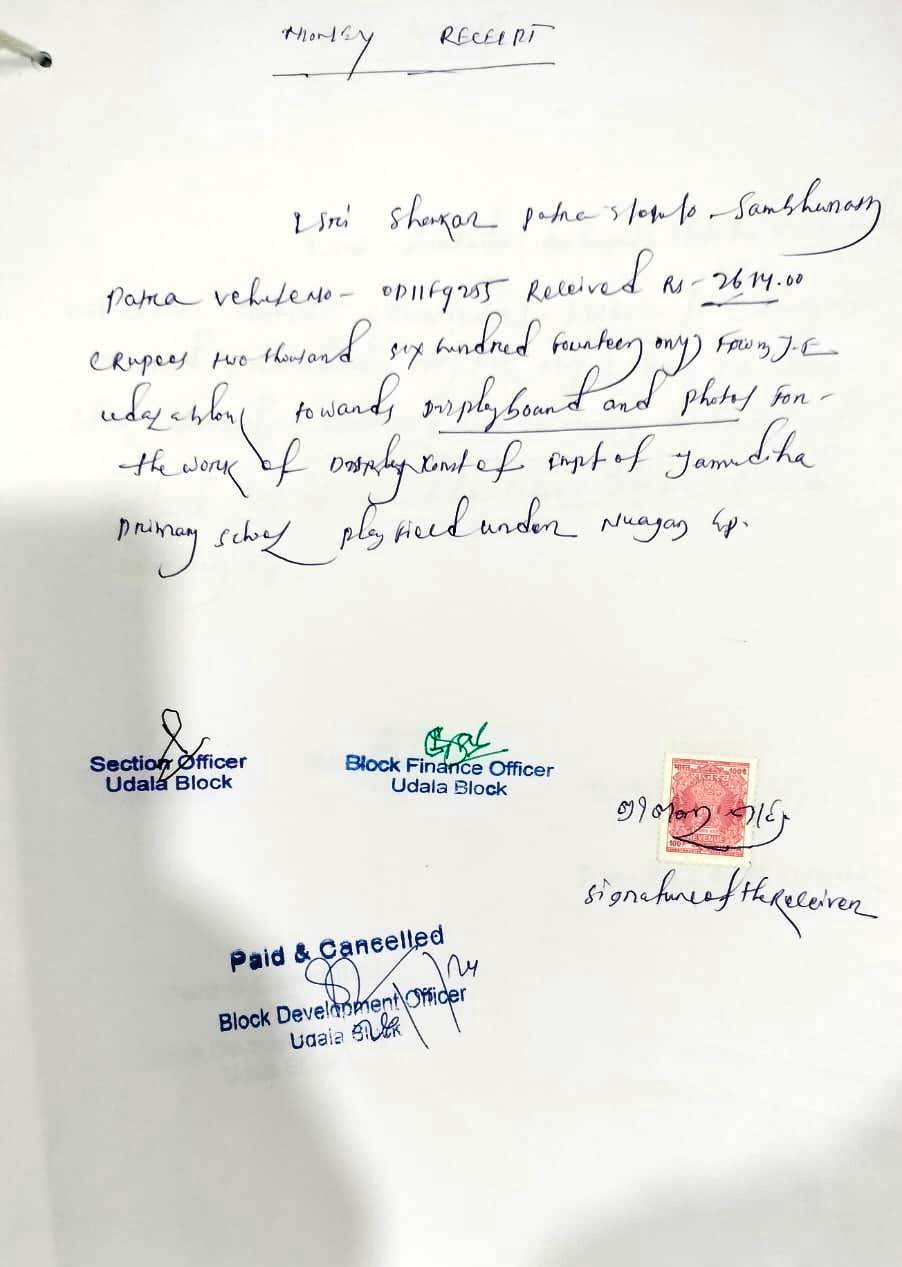 MONEY RECEIPT
I Sri Shankar Patra S/o Sambhunath
Patra vehicle No - OD11F9255 Received Rs - 2614.00
(Rupees two thousand six hundred fourteen only) From J.E
udala block towards Display board and photos For -
the work of Display Const of Impt of Jamudiha
primary school play field under Nuagan Gp.
Section Officer
Udala Block
Block Finance Officer
Udala Block
भारत 100पै
REVENUE
100
Signature of the Receiver
Paid & Cancelled
Block Development Officer
Udala Block